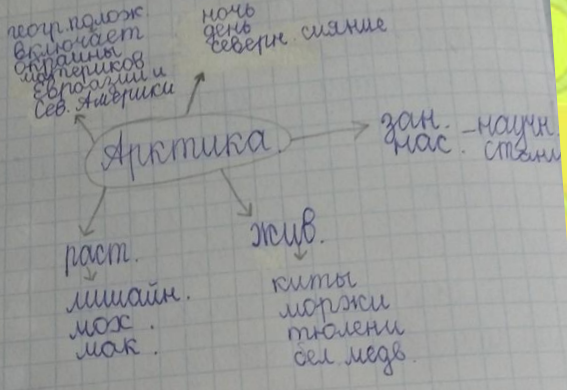 геогр. полож
включает
окраины
материков
Евроазии и
Сев. Америки
ночь
день
северн. сияние
Арктика.
зан. - научн.
нас. станц
раст.
лишайн.
мох.
мак.
жив.
киты
моржи
тюлени
бел. медв.